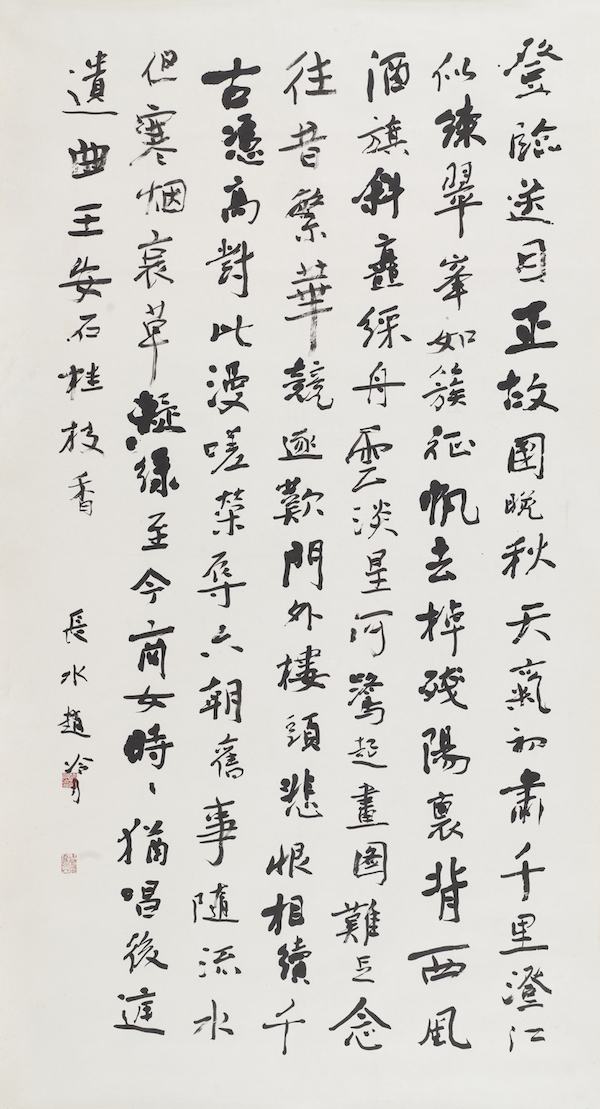 登臨送目正故國晚秋天氣初肅千里澄江
似練翠峯如簇征帆去棹殘陽裏背西風
酒旗斜矗綵舟雲淡星河鷺起畫圖難足念
往昔繁華競逐歎門外樓頭悲恨相續千
古憑高對此漫嗟榮辱六朝舊事隨流水
但寒烟衰草凝綠至今商女時〻猶唱後庭
遺曲王安石桂枝香 長水趙冷月